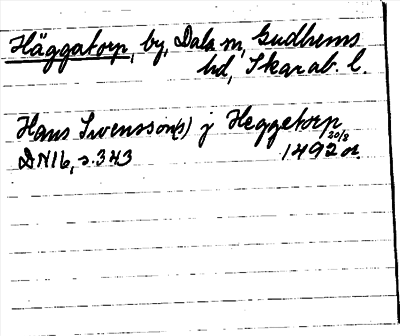 Häggatorp, by, Dala sn, Gudhems
hd, Skarab. l.
Hans Swensson(s) j Heggetorp
20/8
DN16, s. 343 1492 or.